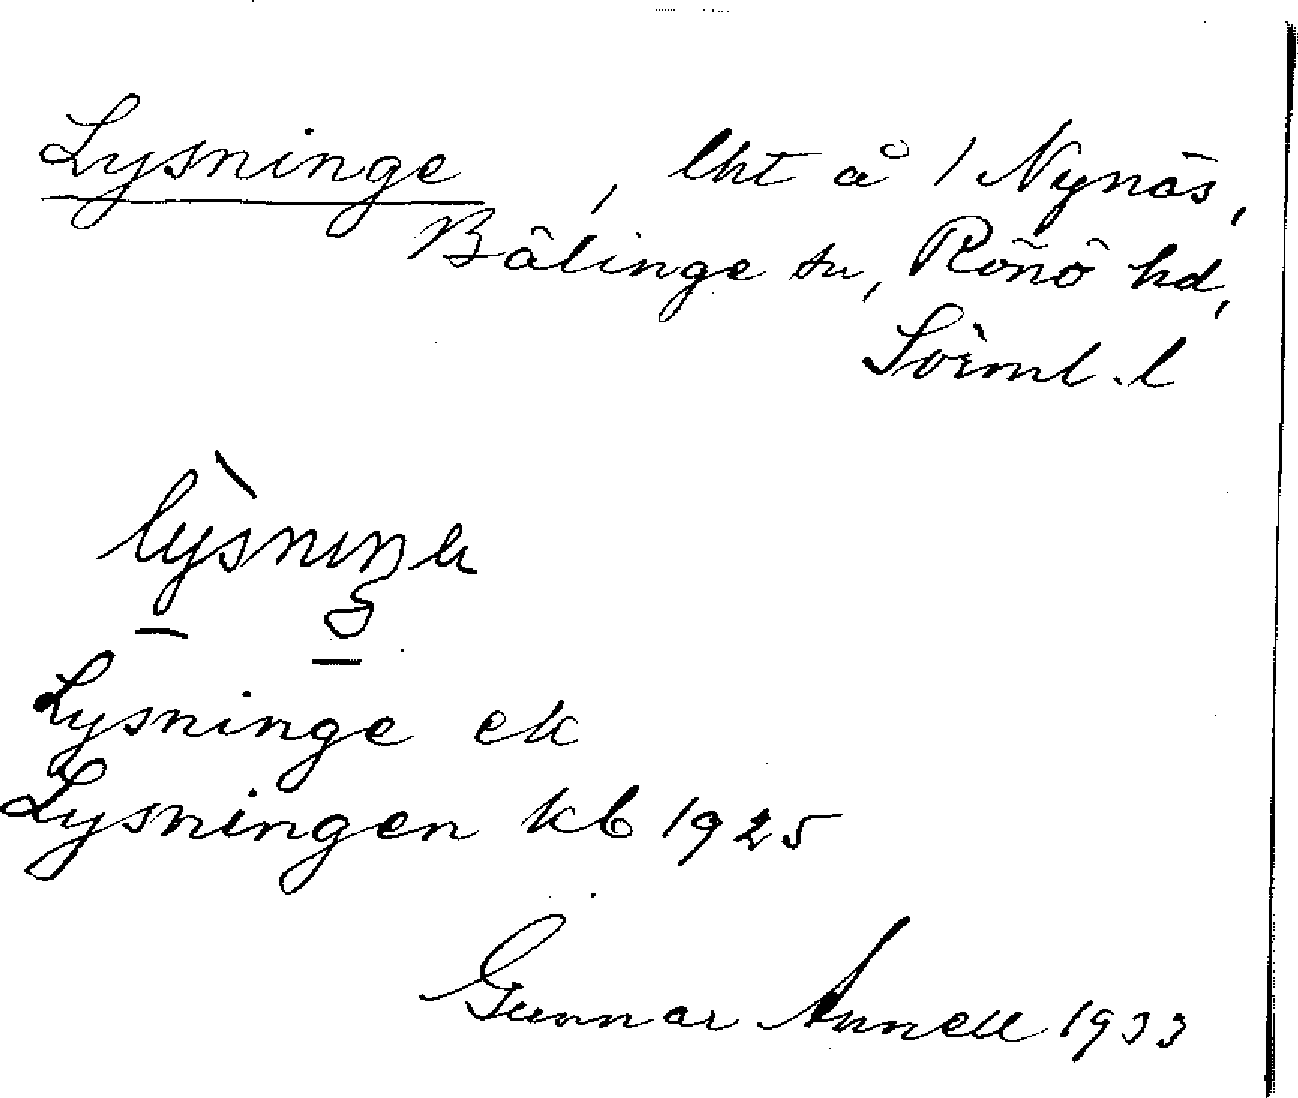 Lysninge, lht å 1 Nynäs,
Bälinge sn, Rönö hd,
Sörml. l
Lysninge ek
Lysningen kb 1925
Gunnar Annell 1933